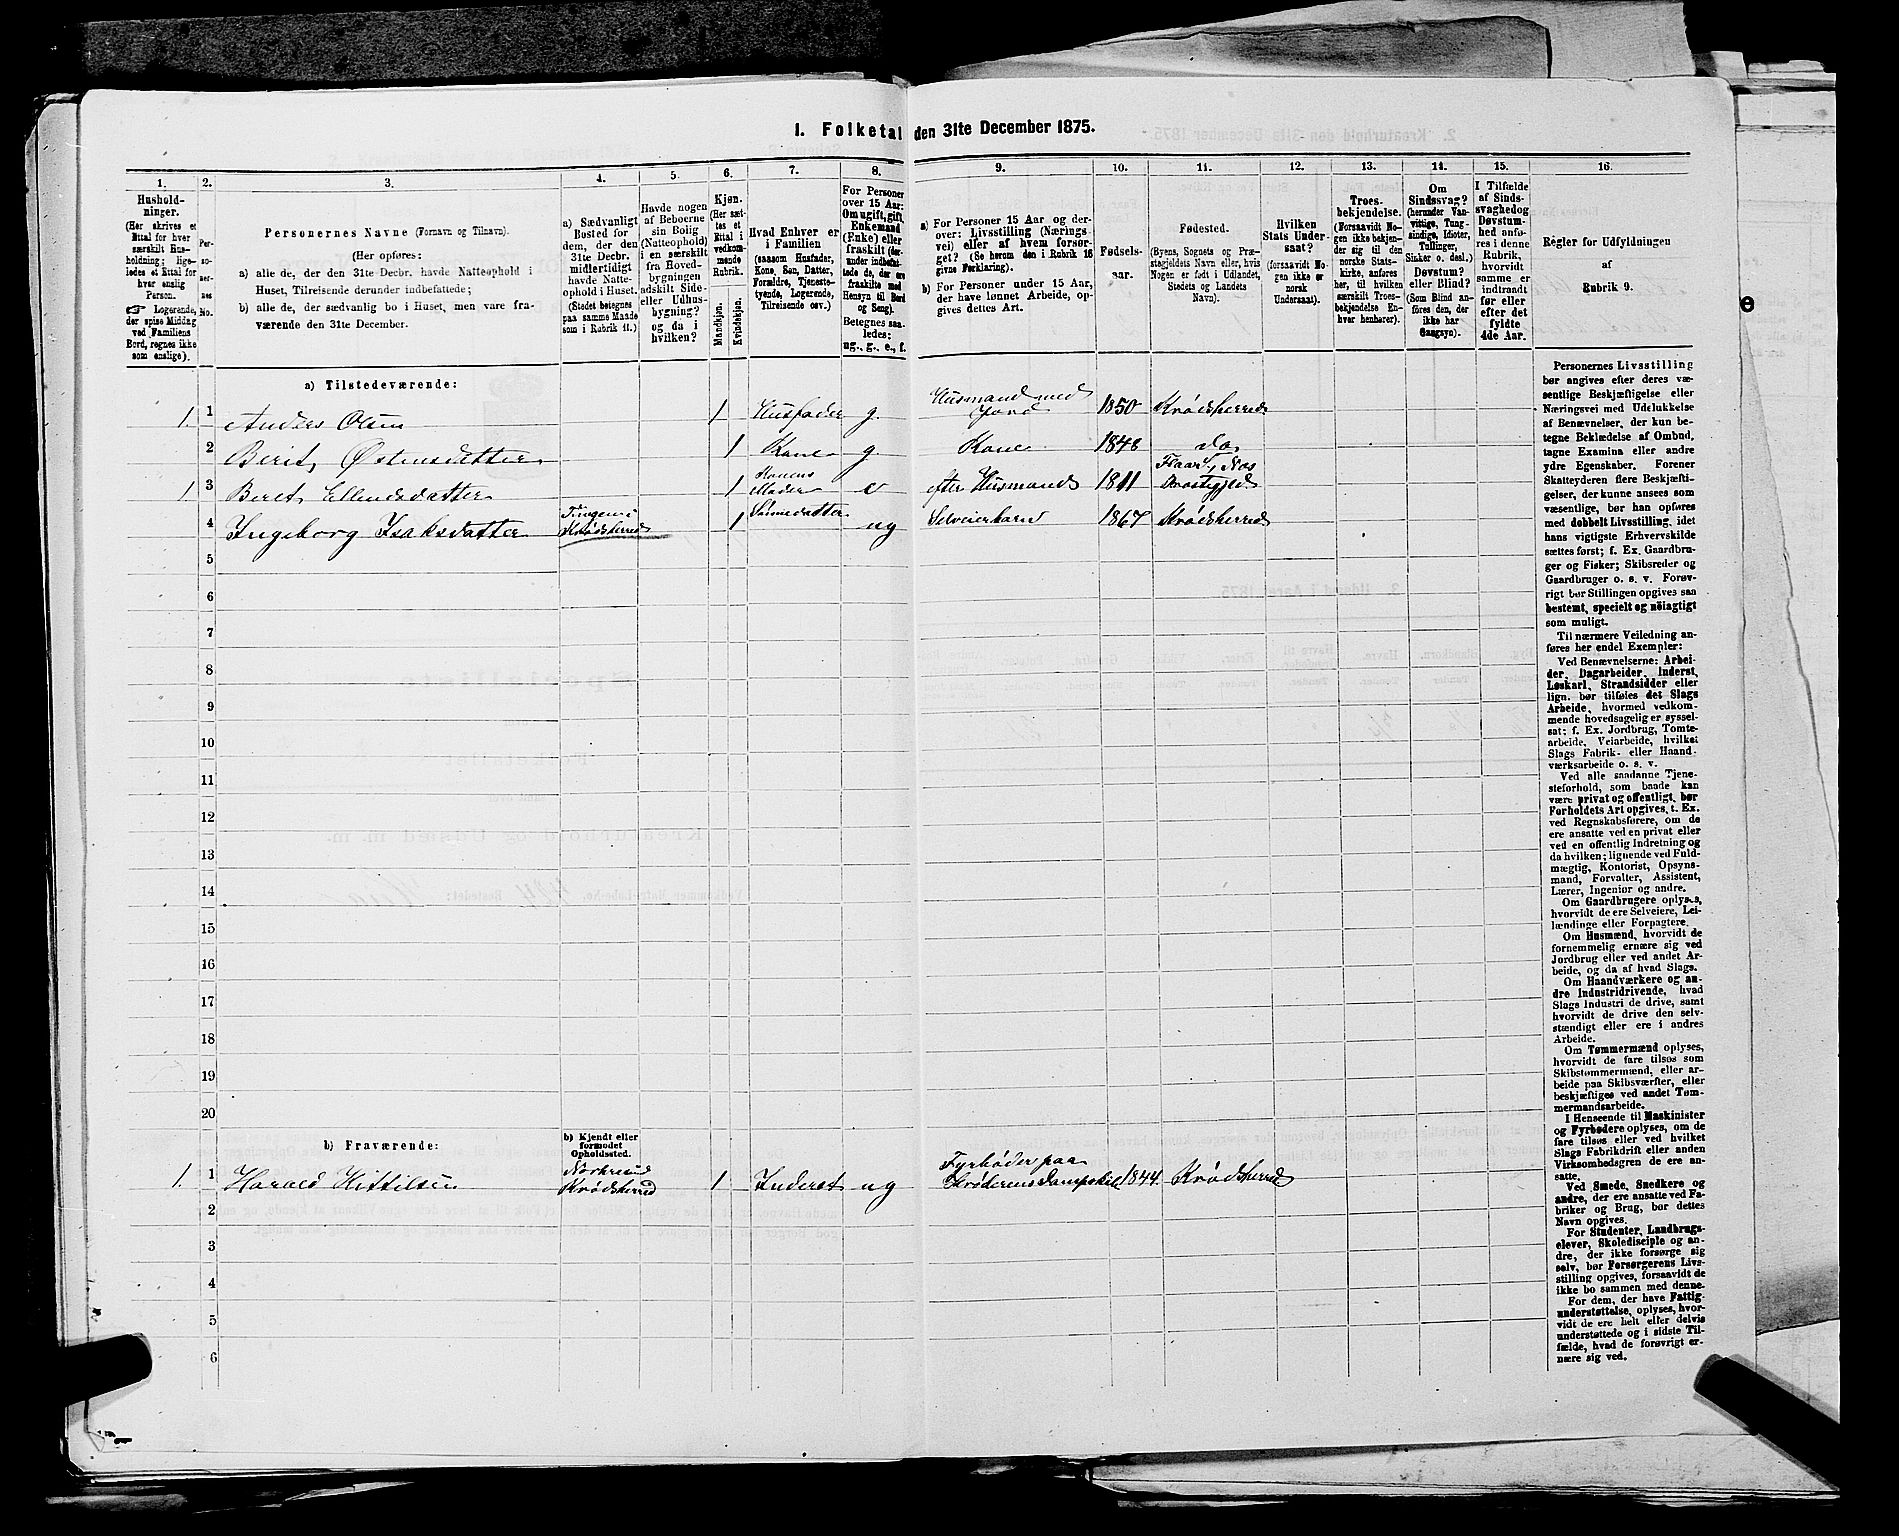 1. Folketal den 31te December 1875.
1.
2.
3.
4.
5.
6.
7.
8.
9.
10.
11.
12.
13.
14.
15.
16.
Hushold-
ninger.
(Her skrives et
Ettal for hver
særskilt Hus-
holdning; lige-
ledes et Ettal for
hver enslig
Person.
☞ Logerende,
der spise Middag
ved Familiens
Bord, regnes ikke
som enslige).
Per-
so-
ner-
nes
No.
Personernes Navne (Fornavn og Tilnavn).
(Her opføres:
a) alle de, der den 31te Decbr. havde Natteophold i
Huset, Tilreisende derunder indbefattede;
b) alle de, der sædvanlig bo i Huset, men vare fra-
værende den 31te December.
a) Sædvanligt
Bosted for
dem, der den
31te Decbr.
midlertidigt
havde Natte-
ophold i Huset.
(Stedet betegnes
paa samme Maade
som i Rubrik 11.)
Havde nogen
af Beboerne
sin Bolig
(Natteophold)
i en særskilt
fra Hoved-
bygningen
adskilt Side-
eller Udhus-
bygning?
og da i
hvilken?
Kjøn.
(Her sæt-
tes et
Ettal i
vedkom-
mende
Rubrik.
Mandkjøn.
Kvindekjøn.
Hvad Enhver er
i Familien
(saasom Husfader,
Kone, Søn, Datter,
Forældre, Tjeneste-
tyende, Logerende,
Tilreisende osv.)
For Personer
over 15 Aar:
Om ugift, gift,
Enkemand
(Enke) eller
fraskilt (der-
under indbefat-
tede de, der ere
fraskilte med
Hensyn til Bord
og Seng).
Betegnes saa-
ledes:
ug., g., e., f.
a) For Personer 15 Aar og der-
over: Livsstilling (Nærings-
vei) eller af hvem forsør-
get? (Se herom den i Rubrik 16
givne Forklaring).
b) For Personer under 15 Aar,
der have lønnet Arbeide, op-
gives dettes Art.
Fødsels-
aar.
Fødested.
(Byens, Sognets og Præ-
stegjeldets Navn eller, hvis
Nogen er født i Udlandet,
Stedets og Landets
Navn).
Hvilken
Stats Under-
saat?
(forsaavidt No-
gen ikke er
norsk
Undersaat).
Troes-
bekjendelse.
(Forsaavidt No-
gen ikke bekjen-
der sig til den
norske Stats-
kirke, anføres
her, til hvilken
særskilt Troes-
bekjendelse En-
hver henhører).
Om
Sindssvag?
(herunder Van-
vittige, Tung-
sindige, Idioter,
Tullinger,
Sinker o. desl.)
Døvstum?
eller Blind?
(Som Blind an-
føres den, der
ikke har
Gangsyn).
I Tilfælde
af Sinds-
svaghed og
Døvstum-
hed anfø-
res i denne
Rubrik,
hvorvidt
samme er
indtraadt
før eller
efter det
fyldte
4de Aar.
Regler for Udfyldningen
af
Rubrik 9.
a) Tilstedeværende:
1. 1 Anders Olsen 1 Husfader g. Husmand med
Jord 1850 Krødsherred
2 Berit Østensdatter 1 Kone g Kone 1848 do
1 3 Beret Ellendsdatter 1 Konens
Moder e efter Husmand 1811
4 Ingeborg Isaksdatter
Krødsherred 1 ug Selveierbarn 1867 Krødsherred
5
6
7
8
9
10
11
12
13
14
15
16
17
18
19
20
b) Fraværende:
b) Kjendt eller
formodet
Opholdssted.
1. 1 Harald Kittilsen Noresund
Krødsherred 1 Inderst ug Fyrbøder paa
Krøderens Dampskib 1844 Krødsherred
2
3
4
5
6
Personernes Livsstilling
bør angives efter deres væ-
sentlige Beskjæftigelse eller
Næringsvei med Udelukkelse
af Benævnelser, der kun be-
tegne Beklædelse af Ombud,
tagne Examina eller andre
ydre Egenskaber. Forener
Skatteyderen flere Beskjæfti-
gelser, der kunne ansees som
væsentlige, bør han opføres
med dobbelt Livsstilling, idet
hans vigtigste Erhvervskilde
sættes først; f. Ex. Gaardbru-
ger og Fisker; Skibsreder og
Gaardbruger o. s. v. Forøv-
rigt bør Stillingen opgives saa
bestemt, specielt og nøiagtigt
som muligt.
Til nærmere Veiledning an-
føres her endel Exempler:
Ved Benævnelserne: Arbei-
der, Dagarbeider, Inderst,
Løskarl, Strandsidder eller
lign. bør tilføies det Slags
Arbeide, hvormed vedkom-
mende hovedsagelig er syssel-
sat; f. Ex. Jordbrug, Tomte-
arbeide, Veiarbeide, hvilket
Slags Fabrik- eller Haand-
værksarbeide o. s. v.
Ved alle saadanne Tjene-
steforhold, som baade kan
være privat og offentligt, bør
Forholdets Art opgives, t. Ex.
ved Regnskabsførere, om de
ere ansatte ved en privat eller
ved en offentlig Indretning og
da hvilken; lignende ved Fuld-
mægtig, Kontorist, Opsyns-
mand, Forvalter, Assistent,
Lærer, Ingeniør og andre.
Om Gaardbrugere oplyses,
hvorvidt de ere Selveiere, Lei-
lændinge eller Forpagtere.
Om Husmænd, hvorvidt de
fornemmelig ernære sig ved
Jordbrug eller ved andet Ar-
beide, og da af hvad Slags.
Om Haandværkere og an-
dre Industridrivende, hvad
Slags Industri de drive, samt
hvorvidt de drive den selv-
stændigt eller ere i andres
Arbeide.
Om Tømmermænd oplyses,
hvorvidt de fare tilsøs som
Skibstømmermænd, eller ar-
beide paa Skibsværfter, eller
beskjæftiges ved andet Tøm-
mermandsarbeide.
I Henseende til Maskinister
og Fyrbødere oplyses, om de
fare tilsøs eller ved hvilket
Slags Fabrikdrift eller anden
Virksomhedsgren de ere an-
satte.
Ved Smede, Snedkere og
andre, der ere ansatte ved Fa-
briker og Brug, bør dettes
Navn opgives.
For Studenter, Landbrugs-
elever, Skoledisciple og an-
dre, der ikke forsørge sig
selv, bør Forsørgerens Livs-
stilling opgives, forsaavidt de
ikke bo sammen med denne.
For dem, der have Fattig-
understøttelse, oplyses, hvor-
vidt de ere helt eller delvis
understøttede og i sidste Til-
fælde, hvad de forøvrigt er-
nære sig ved.